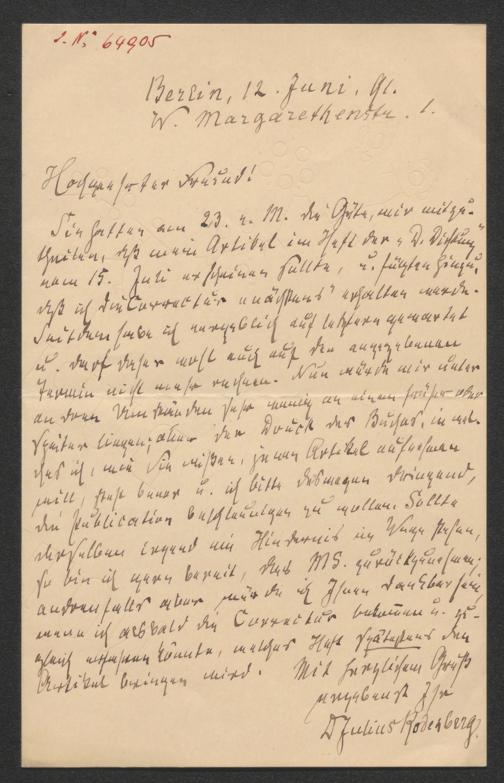 I. N. 64905
Berlin, 12. Juni, 91.
W. Margarethenstr. 1.
Hochgeehrter Freund!
Sie hatten am 23. v. M. die Güte, mir mitzu-
theilen, daß mein Artikel im Heft der „D. Dichtung"
vom 15. Juli erscheinen sollte, u. fügten hinzu,
daß ich die Correctur „nächstens" erhalten werde.
Seitdem habe ich vergeblich auf letztere gewartet
u. darf daher wohl auch auf den angegebenen
Termin nicht mehr rechnen. Nun würde mir unter
andren Umständen sehr wenig an einem früher oder
später liegen; aber der Druck des Buches, in wel-
ches ich, wie Sie wissen, jenen Artikel aufnehmen
will, steht bevor u. ich bitte deswegen dringend,
die Publication beschleunigen zu wollen. Sollte
derselben irgend ein Hindernis im Wege stehen,
so bin ich gern bereit, das MS. zurückzunehmen;
andrenfalls aber würde ich Ihnen dankbar sein,
wenn ich alsbald die Correctur bekommen u. zu-
gleich erfahren könnte, welches Heft spätestens den
Artikel bringen wird. Mit herzlichem Gruß
ergebenst Ihr
D Julius Rodenberg.